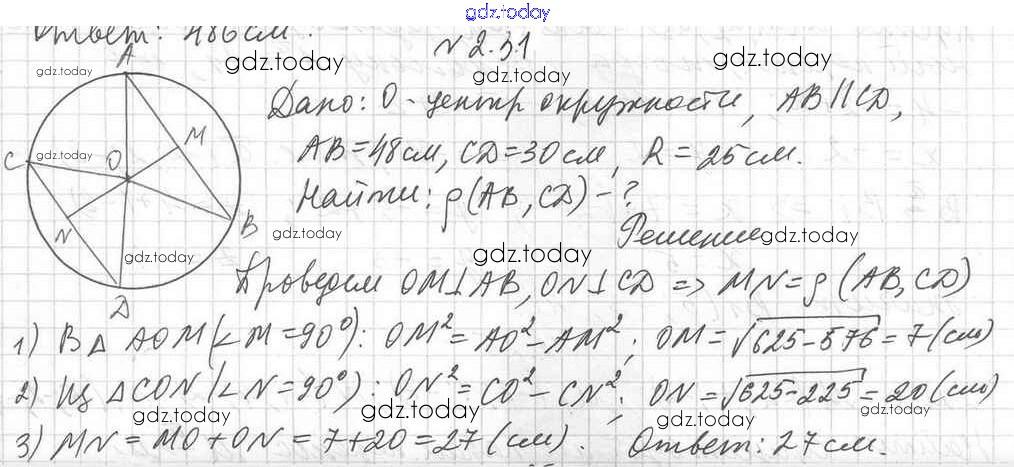 gdz.today
Ответ: 486 см.
№ 2.31
A
gdz.today
gdz.today
gdz.today
gdz.today
Дано: O - центр окружности, AB || CD,
M
C
gdz.today
O
AB = 48 см, CD = 30 см, R = 25 см.
Найти: ρ(AB, CD) - ?
N
B
gdz.today
Решение
gdz.today
gdz.today
gdz.today
Проведем OM ⊥ AB, ON ⊥ CD => MN = ρ(AB, CD)
D
1) В △ AOM (∠M = 90°): OM² = AO² - AM²; OM = √625-576 = 7 (см)
gdz.today
gdz.today
2) Из △CON (∠N = 90°): ON² = CO² - CN²; ON = √625-225 = 20 (см)
gdz.today
gdz.today
gdz.today
gdz.today
3) MN = MO + ON = 7 + 20 = 27 (см). Ответ: 27 см.
gdz.today